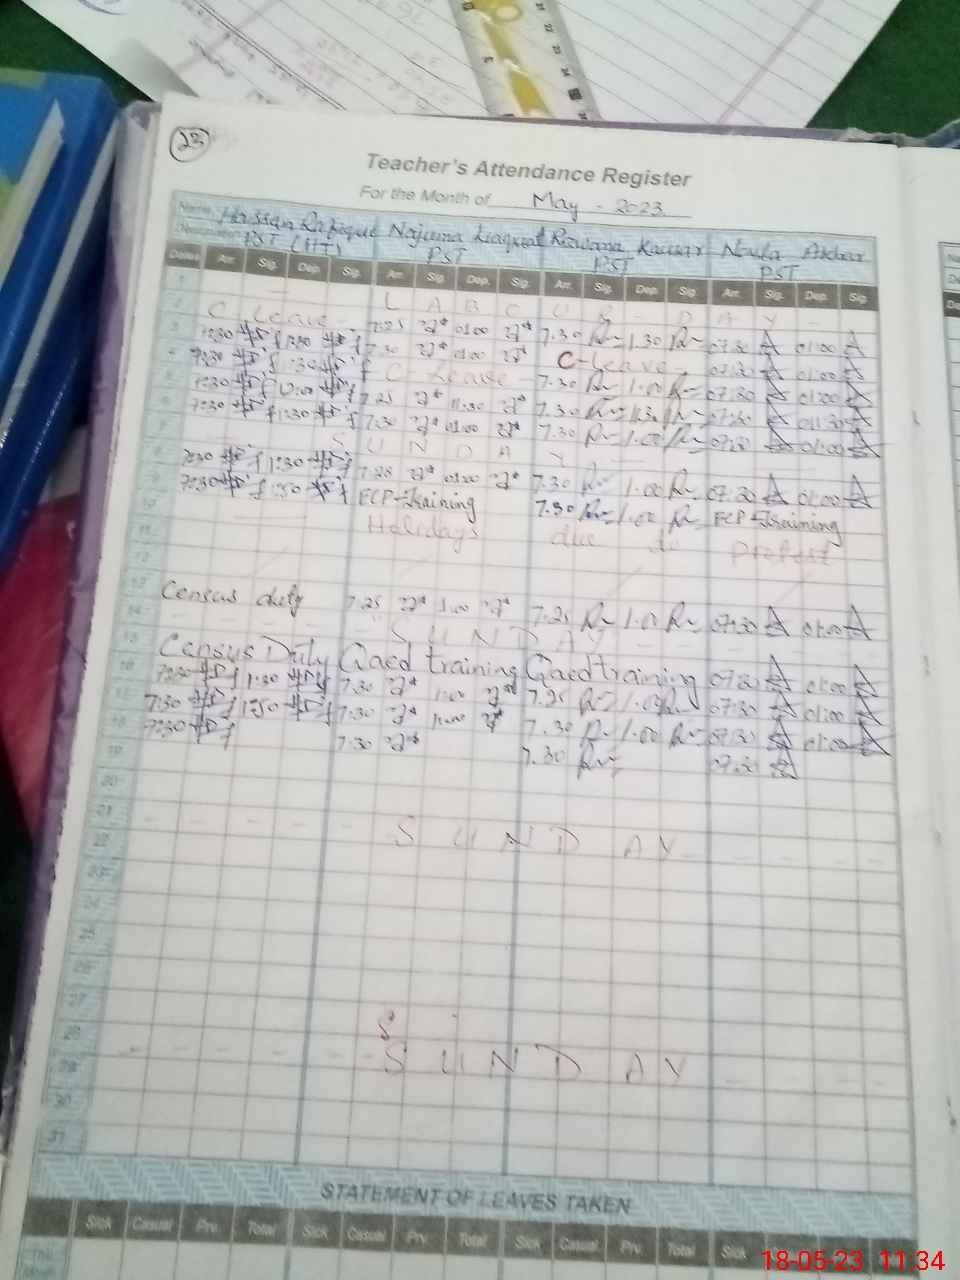 23
Teacher's Attendance Register
For the Month of May - 2023
Name Hassan Rafique Najuma Liaquat Rizwana Kausar Naila Akhbar
Designation PST (HT) PST PST PST
Dates Arr. Sig. Dep. Sig. Arr. Sig. Dep. Sig. Arr. Sig. Dep. Sig. Arr. Sig. Dep. Sig.
1 L A B O U R - D A Y -
2 C Leave - 7.25 01:00 7.30 1.30 07:30 01:00
3 7:30 1:30 7.30 01:00 C-leave 07:30 01:00
4 7:30 1:30 C - Leave - 7.30 1.00 07:30 01:00
5 7:30 12:00 7.25 11:30 7.30 11.30 07:30 01:30
6 7:30 1:30 7:30 01:00 7.30 1.00 07:30 01:00
7 S U N D A Y
8 7:30 1:30 7.25 01:00 7.30 1.00 07:30 01:00
9 7:30 1:30 ECP-Training 7.30 1.00 ECP-Training
10 Holidays due to Protest
11
12
13 Census duty 7.25 1.00 7.25 1.00 07:30 01:00
14 S U N D A Y
15 Census Duty Qaed training Qaed training 07:30 01:00
16 7:30 1:30 7.30 1:00 7.25 1.00 07:30 01:00
17 7:30 1:30 7:30 1:00 7.30 1.00 07:30 01:00
18 7:30 7:30 7.30 07:30
19
20
21 S U N D A Y
22
23
24
25
26
27
28 S U N D A Y
29
30
31
STATEMENT OF LEAVES TAKEN
Sick Casual Prv. Total Sick Casual Prv. Total Sick Casual Prv. Total Sick Casual
18-05-23 11:34